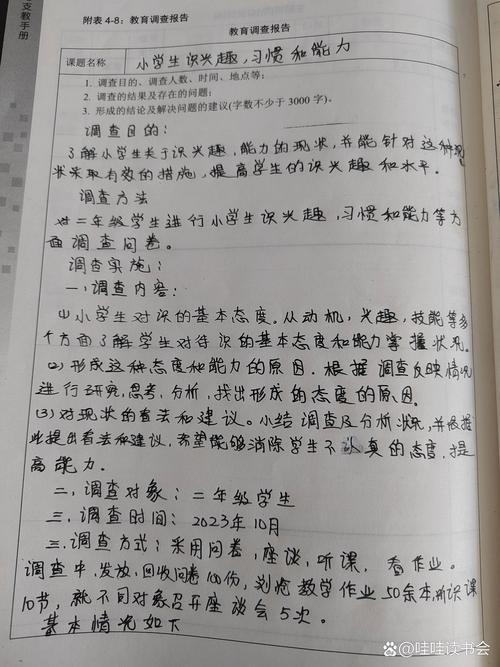 支教手册
附表 4-8：教育调查报告
教育调查报告
课题名称 小学生识兴趣，习惯和能力
1. 调查目的、调查人数、时间、地点等；
2. 调查的结果及存在的问题；
3. 形成的结论及解决问题的建议(字数不少于 3000 字)。
调查目的：
了解小学生关于识兴趣，能力的现状，并能针对这种现
状采取有效的措施，提高学生的识兴趣和水平。
调查方法
对二年级学生进行小学生识兴趣，习惯和能力等方
面调查问卷。
调查实施：
一，调查内容：
(1)小学生对识的基本态度。从动机，兴趣，技能等多
个方面了解学生对待识的基本态度和能力掌握状况。
(2)形成这种态度和能力的原因。根据调查反映情况
进行研究，思考，分析，找出形成的态度的原因。
(3)对现状的看法和建议。小结调查及分析状况，并依据
此提出看法和建议，希望能够消除学生不认真的态度，提
高能力。
二，调查对象：二年级学生
三，调查时间：2023年10月
三，调查方式：采用问卷，座谈，听课，查作业。
调查中，发放，回收问卷100份，浏览教学作业50余本，听识课
10节，就不同对象召开座谈会5次。
基本情况如下
哇哇读书会